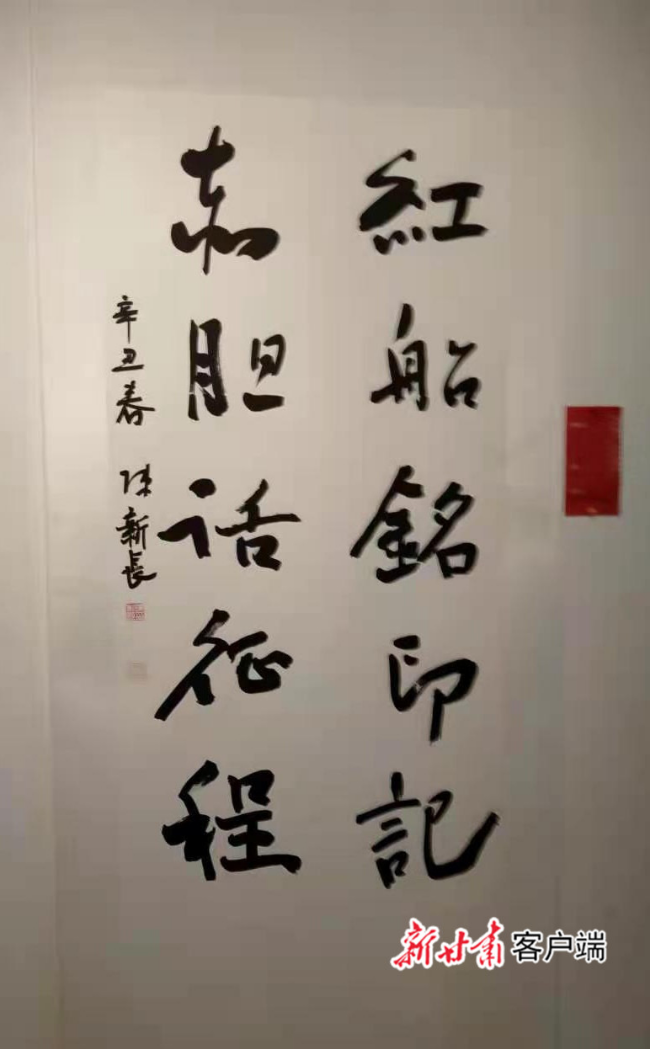 紅船銘印記
赤胆话征程
辛丑春 陈新長
新甘肃客户端